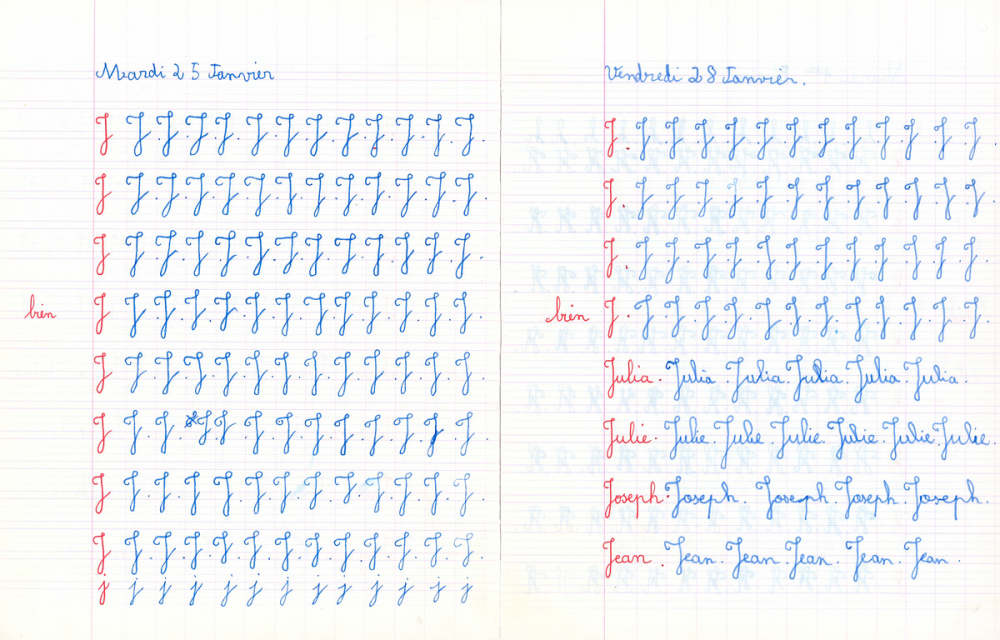 Mardi 25 Janvier
J J. J. J. J. J. J. J. J. J. J. J. J.
J J. J. J. J. J. J. J. J. J. J. J. J.
J J. J. J. J. J. J. J. J. J. J. J. J.
bien J J. J. J. J. J. J. J. J. J. J. J. J.
J J. J. J. J. J. J. J. J. J. J. J. J.
J J. J. J J. J. J. J. J. J. J. J. J.
J J. J. J. J. J. J. J. J. J. J. J. J.
J J. J. J. J. J. J. J. J. J. J. J. J.
j j j j j j j j j j j j j
Vendredi 28 Janvier.
J. J. J. J. J. J. J. J. J. J. J. J. J.
J. J. J. J. J. J. J. J. J. J. J. J. J.
J. J. J. J. J. J. J. J. J. J. J. J. J.
bien J. J. J. J. J. J. J. J. J. J. J. J. J.
Julia. Julia. Julia. Julia. Julia. Julia.
Julie. Julie. Julie. Julie. Julie. Julie. Julie.
Joseph. Joseph. Joseph. Joseph. Joseph.
Jean. Jean. Jean. Jean. Jean. Jean.